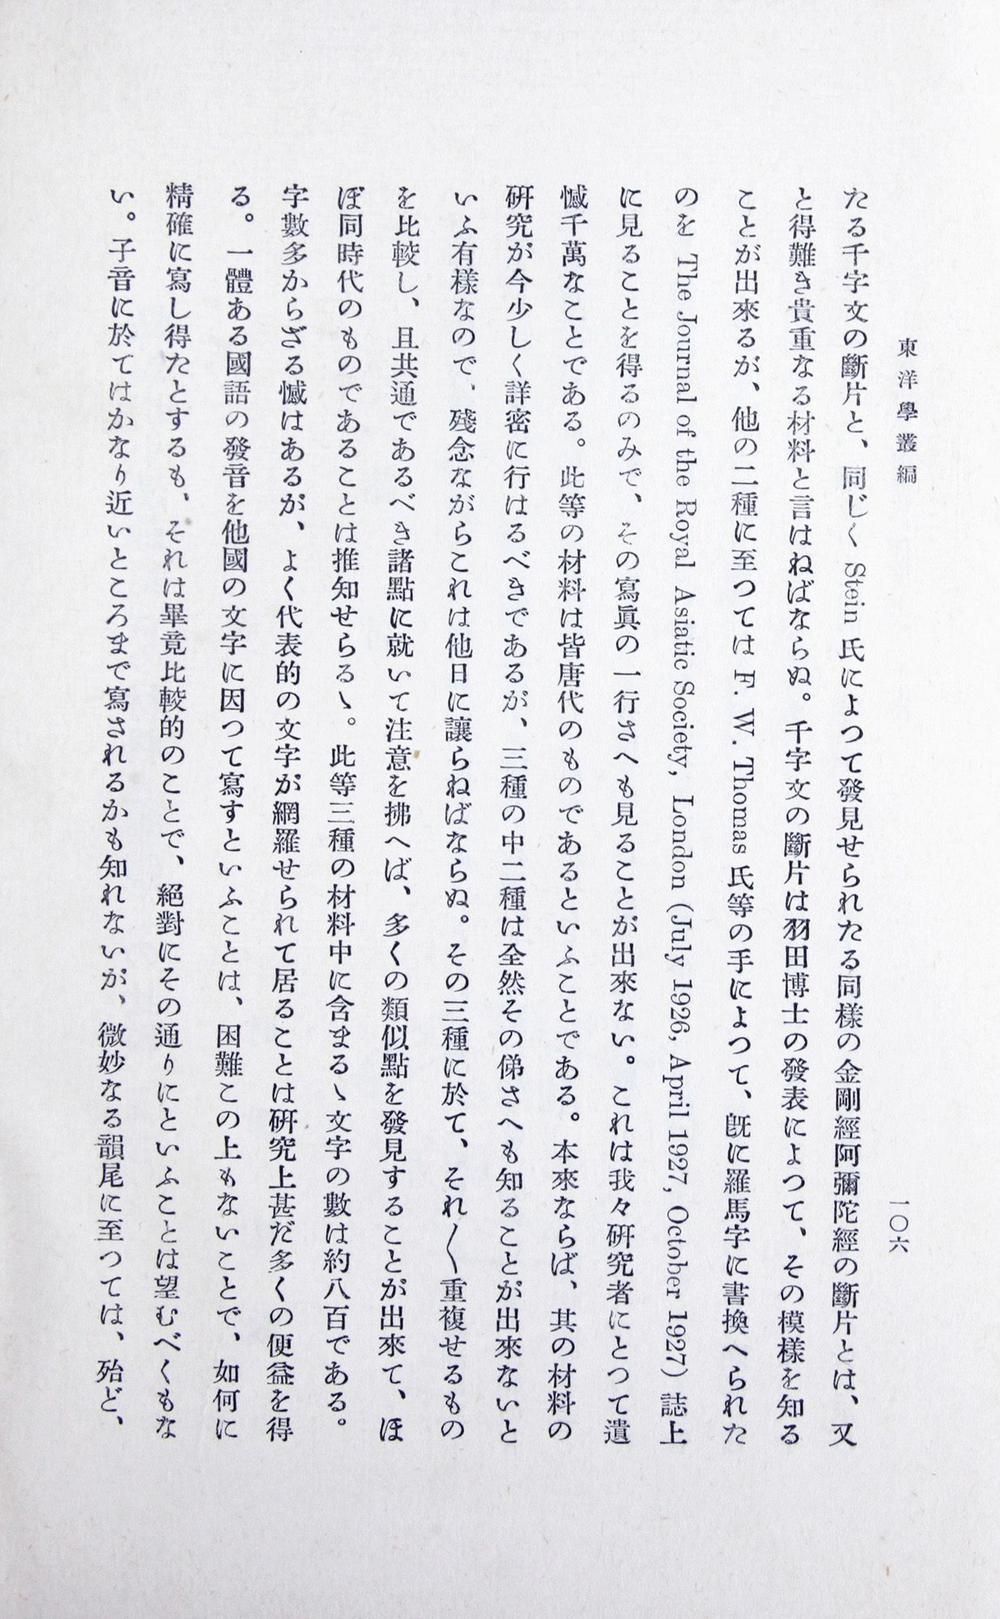 東洋學叢編
一〇六
たる千字文の斷片と、同じく Stein 氏によつて發見せられたる同樣の金剛經阿彌陀經の斷片とは、又
と得難き貴重なる材料と言はねばならぬ。千字文の斷片は羽田博士の發表によつて、その模樣を知る
ことが出來るが、他の二種に至つては F. W. Thomas 氏等の手によつて、旣に羅馬字に書換へられた
のを The Journal of the Royal Asiatic Society, London (July 1926, April 1927, October 1927) 誌上
に見ることを得るのみで、その寫眞の一行さへも見ることが出來ない。これは我々硏究者にとつて遺
憾千萬なことである。此等の材料は皆唐代のものであるといふことである。本來ならば、其の材料の
硏究が今少しく詳密に行はるべきであるが、三種の中二種は全然その俤さへも知ることが出來ないと
いふ有樣なので、殘念ながらこれは他日に讓らねばならぬ。その三種に於て、それ〱重複せるもの
を比較し、且共通であるべき諸點に就いて注意を拂へば、多くの類似點を發見することが出來て、ほ
ぼ同時代のものであることは推知せらるゝ。此等三種の材料中に含まるゝ文字の數は約八百である。
字數多からざる憾はあるが、よく代表的の文字が網羅せられて居ることは硏究上甚だ多くの便益を得
る。一體ある國語の發音を他國の文字に因つて寫すといふことは、困難この上もないことで、如何に
精確に寫し得たとするも、それは畢竟比較的のことで、絕對にその通りにといふことは望むべくもな
い。子音に於てはかなり近いところまで寫されるかも知れないが、微妙なる韻尾に至つては、殆ど、